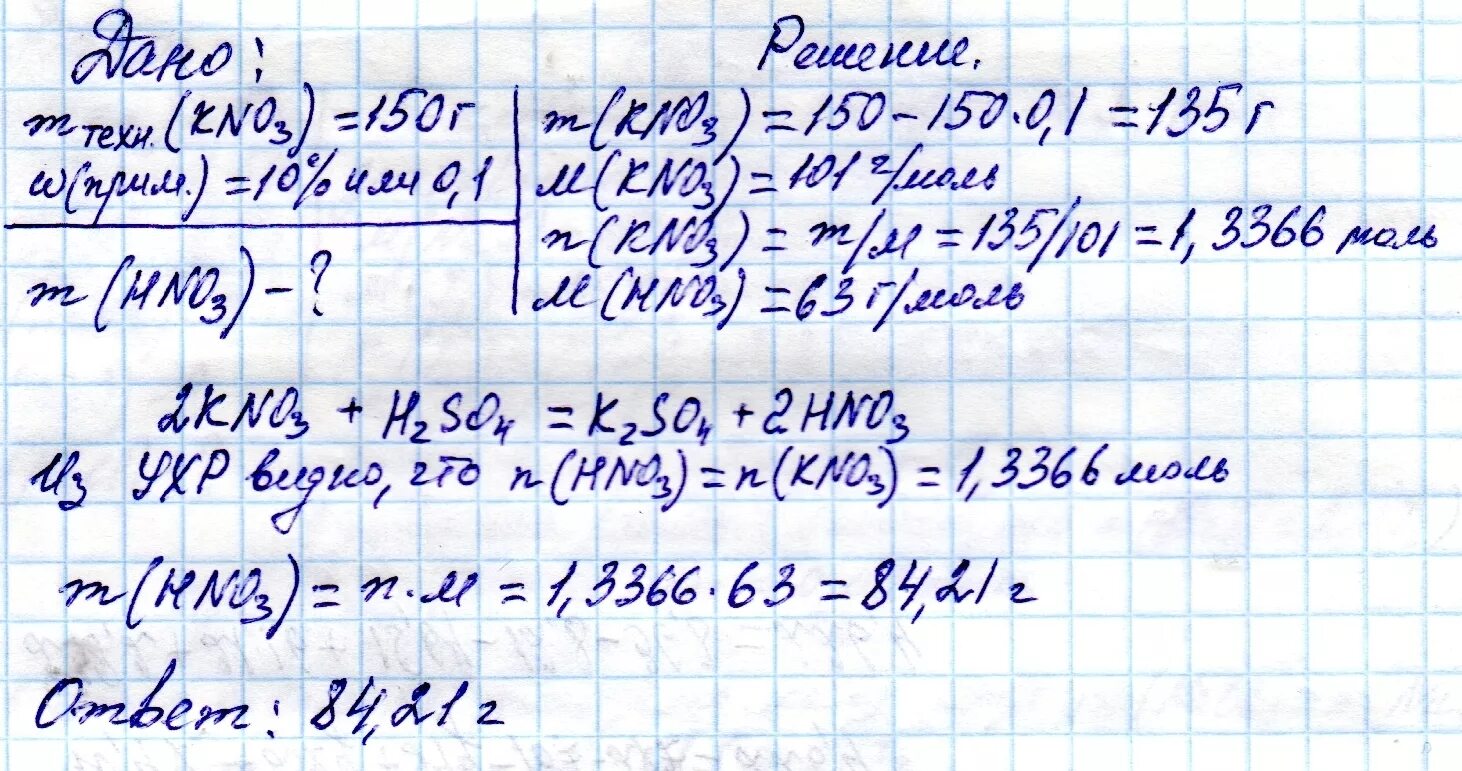 Дано:
Решение.
m техн.(KNO₃) = 150 г
ω(прим.) = 10% или 0,1
m(HNO₃) – ?
m(KNO₃) = 150 – 150·0,1 = 135 г
M(KNO₃) = 101 г/моль
n(KNO₃) = m/M = 135/101 = 1,3366 моль
M(HNO₃) = 63 г/моль
2KNO₃ + H₂SO₄ = K₂SO₄ + 2HNO₃
Из УХР видно, что n(HNO₃) = n(KNO₃) = 1,3366 моль
m(HNO₃) = n·M = 1,3366·63 = 84,21 г
Ответ: 84,21 г